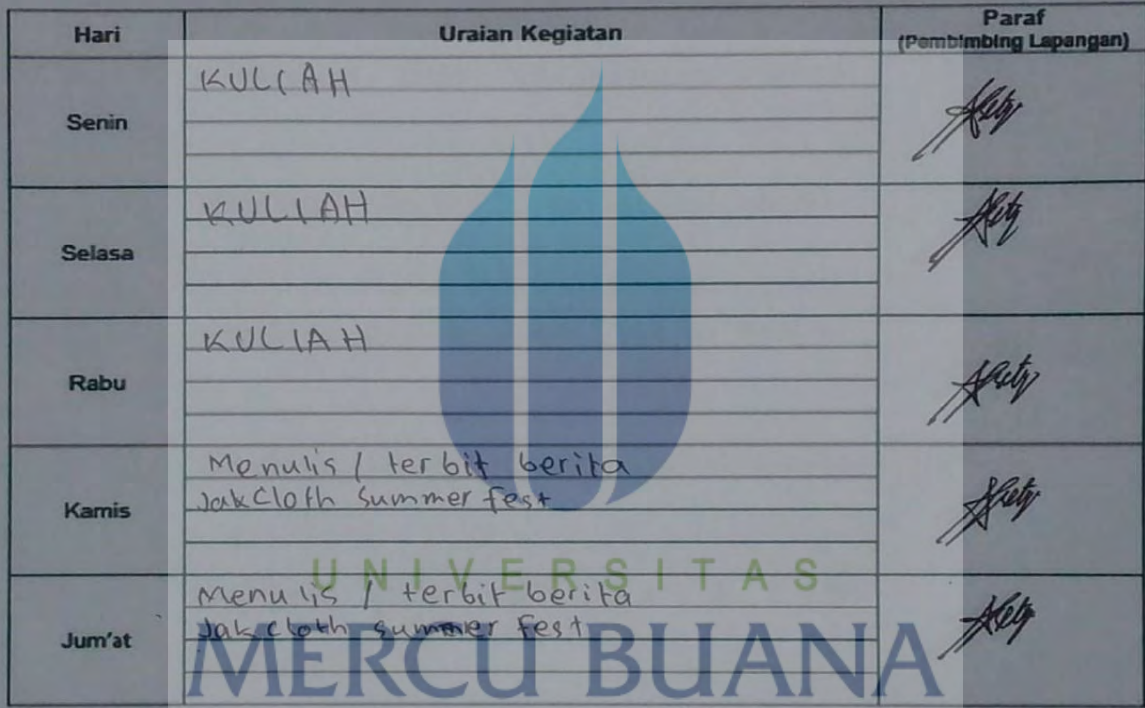 Hari Uraian Kegiatan Paraf
(Pembimbing Lapangan)
Senin KULIAH
Selasa KULIAH
Rabu KULIAH
Kamis Menulis / terbit berita
JakCloth Summer fest
Jum'at Menulis / terbit berita
Jakcloth summer fest
UNIVERSITAS
MERCU BUANA